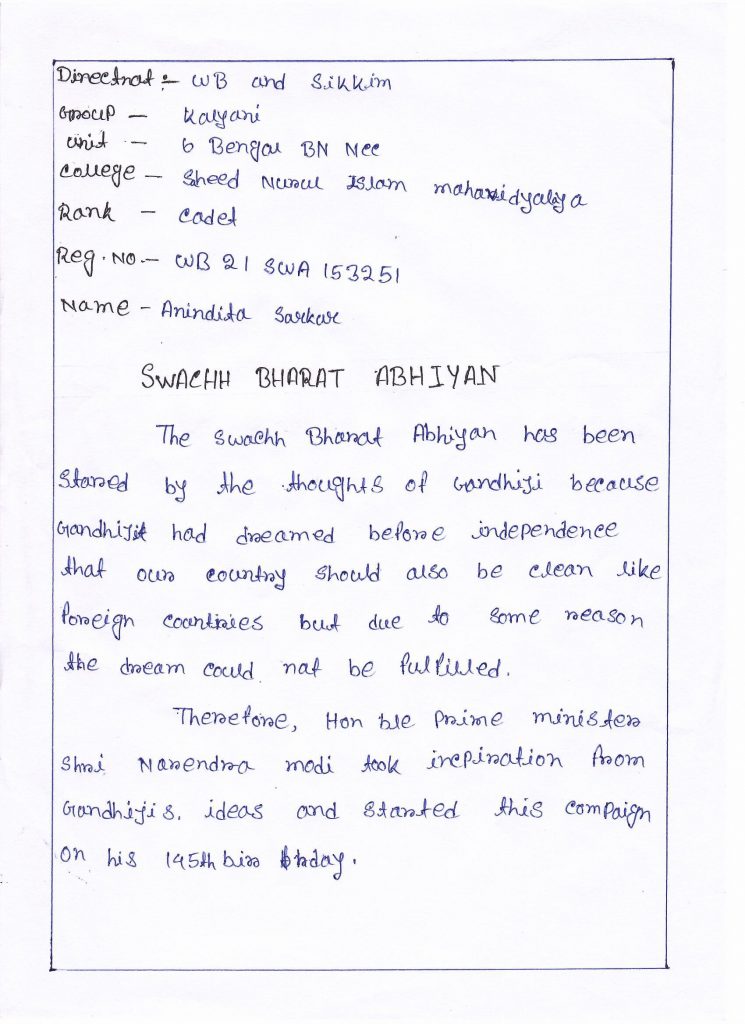 Directrat :- WB and Sikkim
Group - Kalyani
unit - 6 Bengal BN Ncc
College - Sheed Nurul Islam mahavidyalya
Rank - cadet
Reg. No. - WB 21 SWA 153251
Name - Anindita Sarkar
SWACHH BHARAT ABHIYAN
The Swachh Bharat Abhiyan has been
stared by the thoughts of Gandhiji because
Gandhiji had dreamed before independence
that our country should also be clean like
foreign countries but due to some reason
the dream could nat be fulfilled.
Therefore, Hon ble Prime minister
Shri Narendra modi took incpiration from
Gandhijis. ideas and started this compaign
on his 145th bir thday.